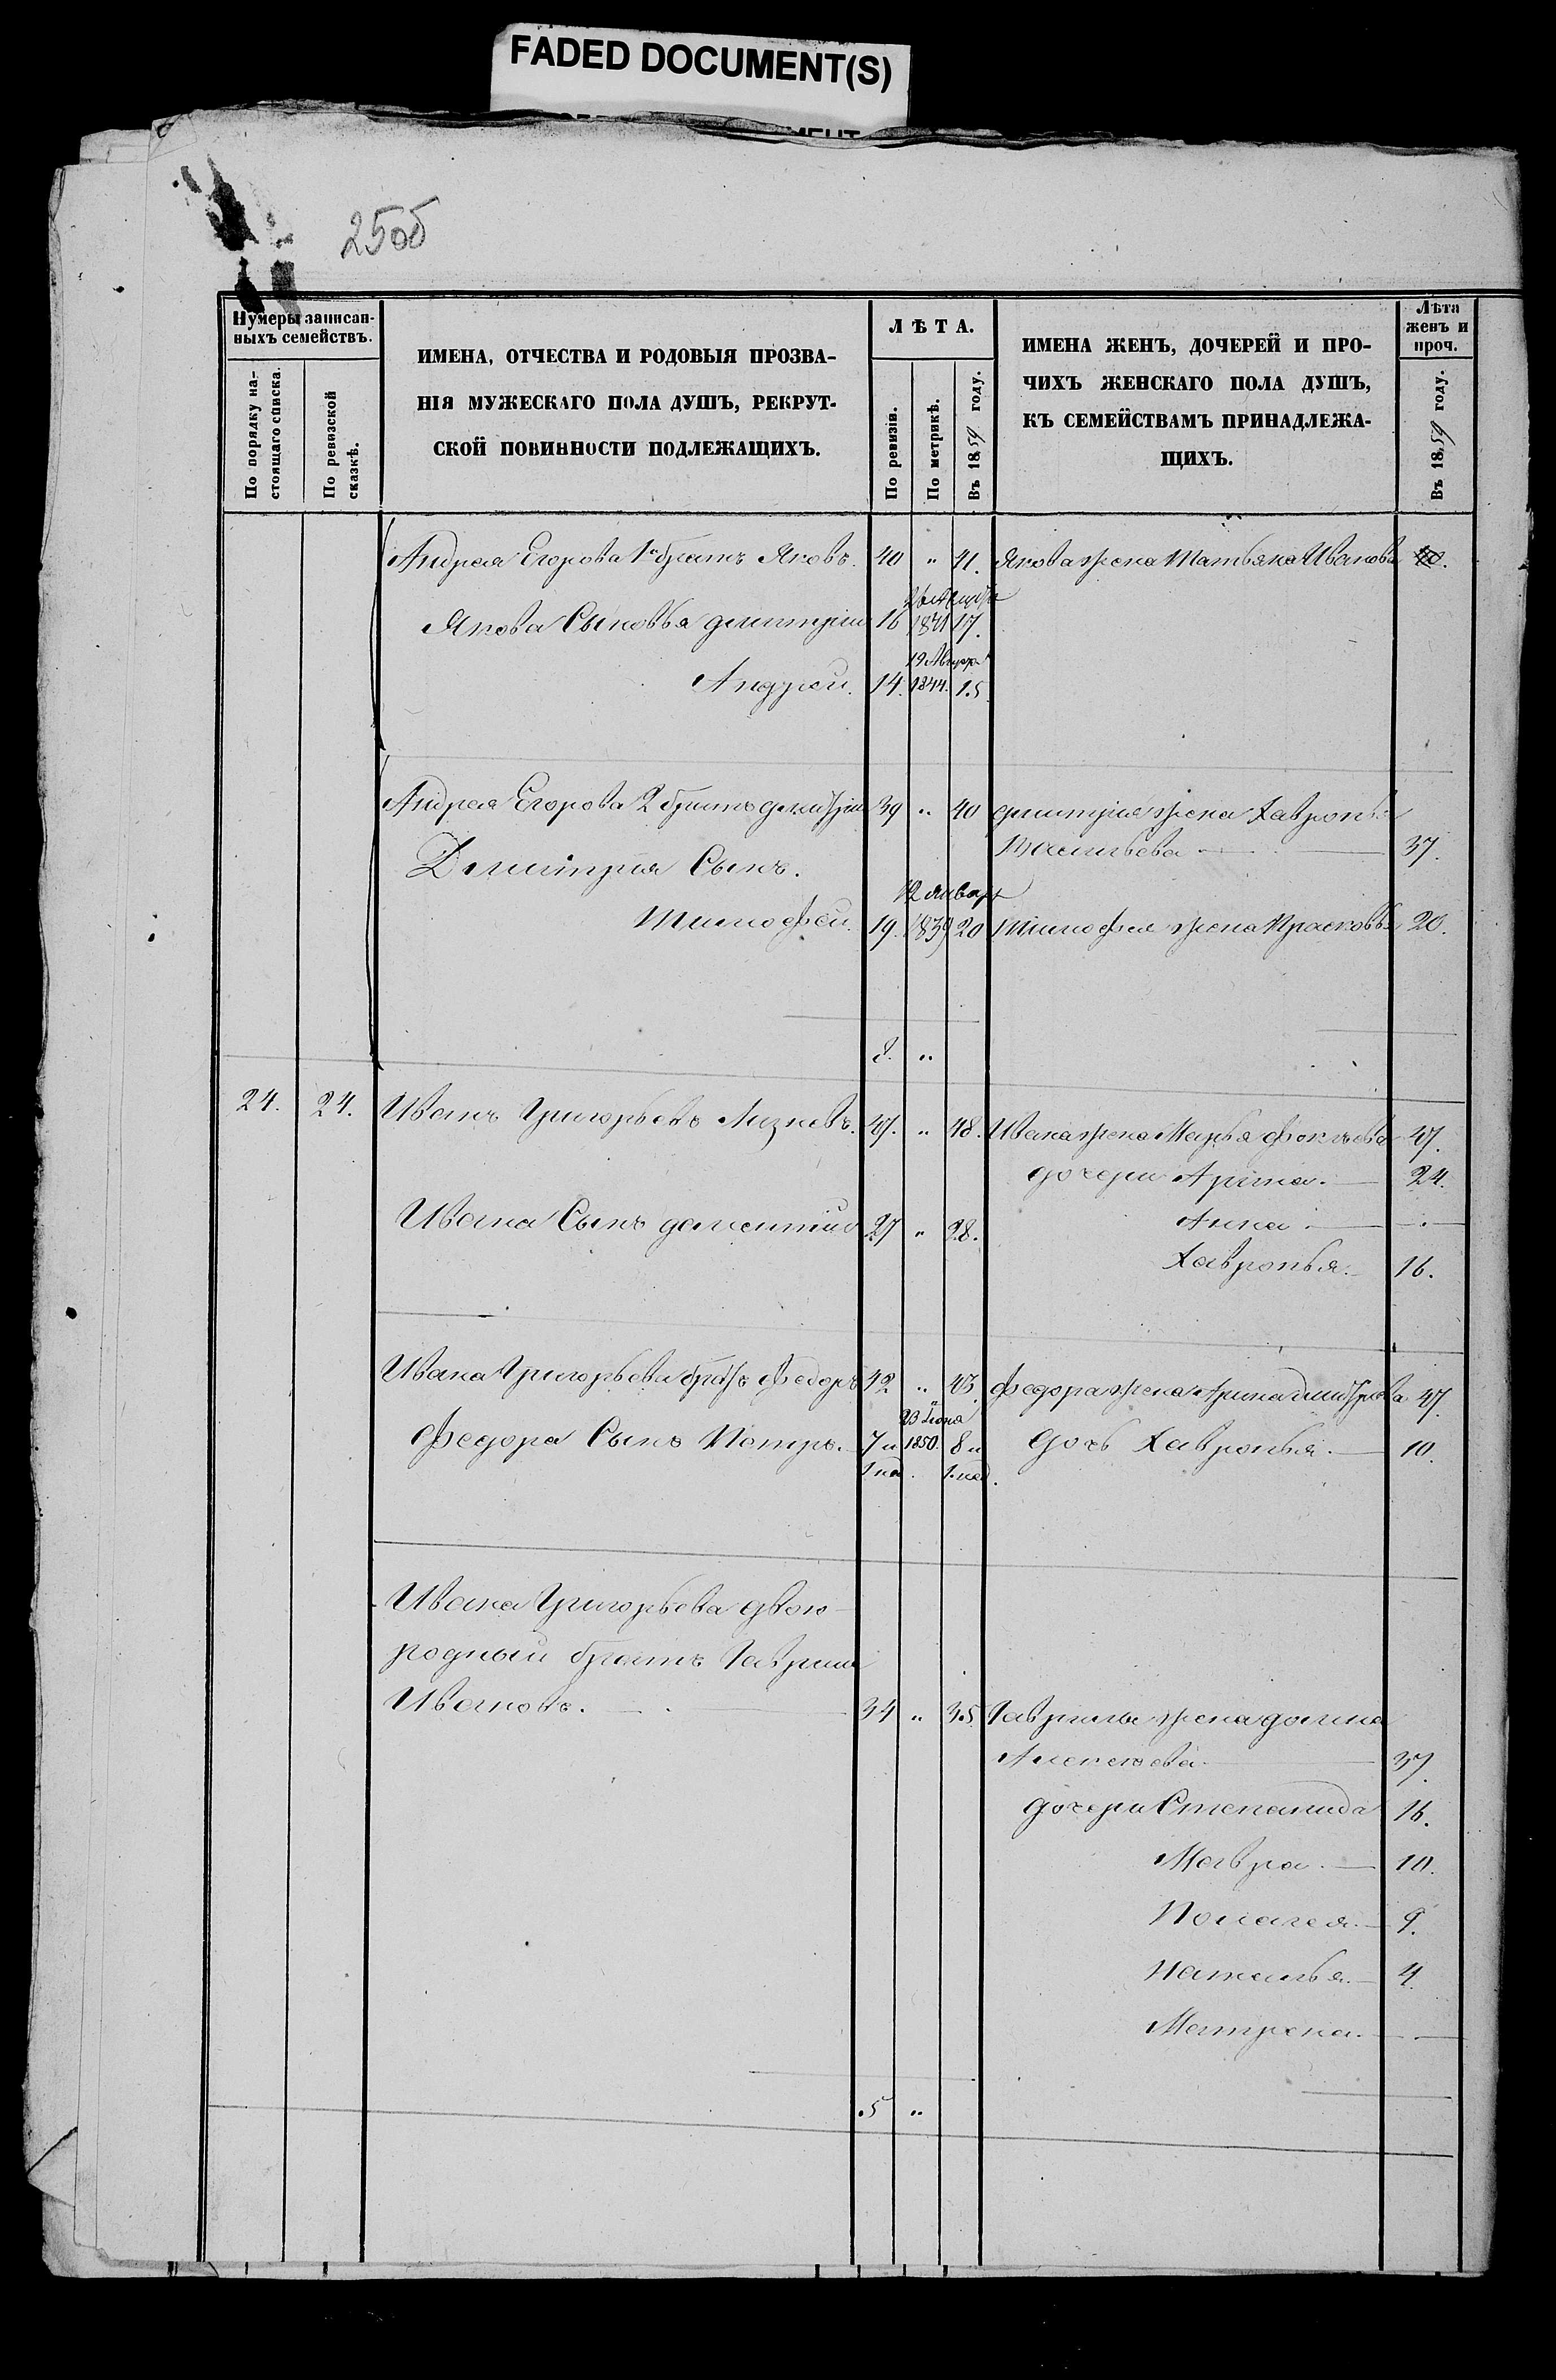 FADED DOCUMENT(S)
25об
Нумеры записан-
ныхъ семействъ.
По порядку на-
стоящаго списка.
По ревизской
сказкѣ.
ИМЕНА, ОТЧЕСТВА И РОДОВЫЯ ПРОЗВА-
НІЯ МУЖЕСКАГО ПОЛА ДУШЪ, РЕКРУТ-
СКОЙ ПОВИННОСТИ ПОДЛЕЖАЩИХЪ.
ЛѢТА.
По ревизіи.
По метрикѣ.
Въ 1859 году.
ИМЕНА ЖЕНЪ, ДОЧЕРЕЙ И ПРО-
ЧИХЪ ЖЕНСКАГО ПОЛА ДУШЪ,
КЪ СЕМЕЙСТВАМЪ ПРИНАДЛЕЖА-
ЩИХЪ.
Лѣта
женъ и
проч.
Въ 1859 году.
Андрея Егорова 1й братъ Яковъ. 40 " 41. Якова жена Татьяна Иванова 40.
Якова Сыновья Дмитрій 16 1841 17.
19 Августа
Андрей. 14. 1844. 15.
Андрея Егорова 2 братъ Дмитрій 39 " 40 Дмитрія жена Хавронья
Васильева 37.
Дмитрія Сынъ.
12 январ
Тимофей. 19. 1839 20 Тимофея жена Прасковья 20.
8. "
24. 24. Иванъ Григорьевъ Лизневъ. 47. " 48. Ивана жена Марья 47.
дочери Арина. 24.
Ивана Сынъ 27 " 28. Анна
Хавронья. 16.
Ивана Григорьева братъ Федоръ 42 " 43 Федора жена Арина Дмитріева 47.
23 Іюня
Федора Сынъ Петръ. 7 и 1850. 8 и дочь Хавронья. 10.
1 нед. 1. нед.
Ивана Григорьева двою-
родный братъ Гаврила
Ивановъ. 34 " 35 Гаврилы жена Домна
Алексѣева 37.
дочери Степанида 16.
Мавра. 10.
Полагея. 9.
Наталья. 4.
Матрена.
5 "